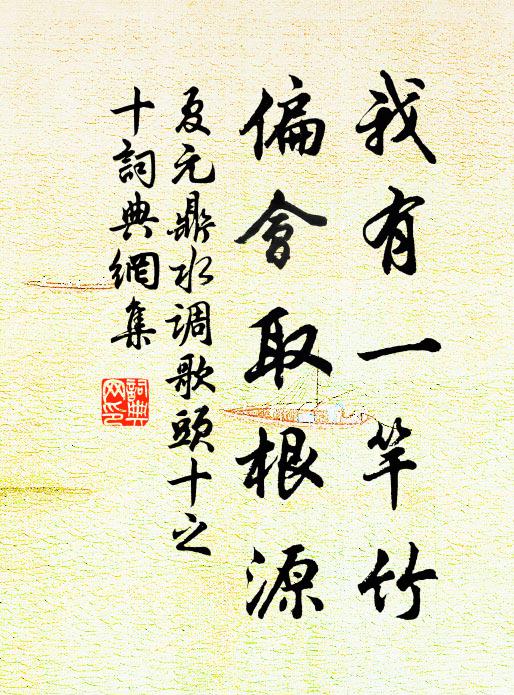 我有一竿竹
偏會取根源
夏元鼎水调歌頭十之
十詞典網集
詞典网印